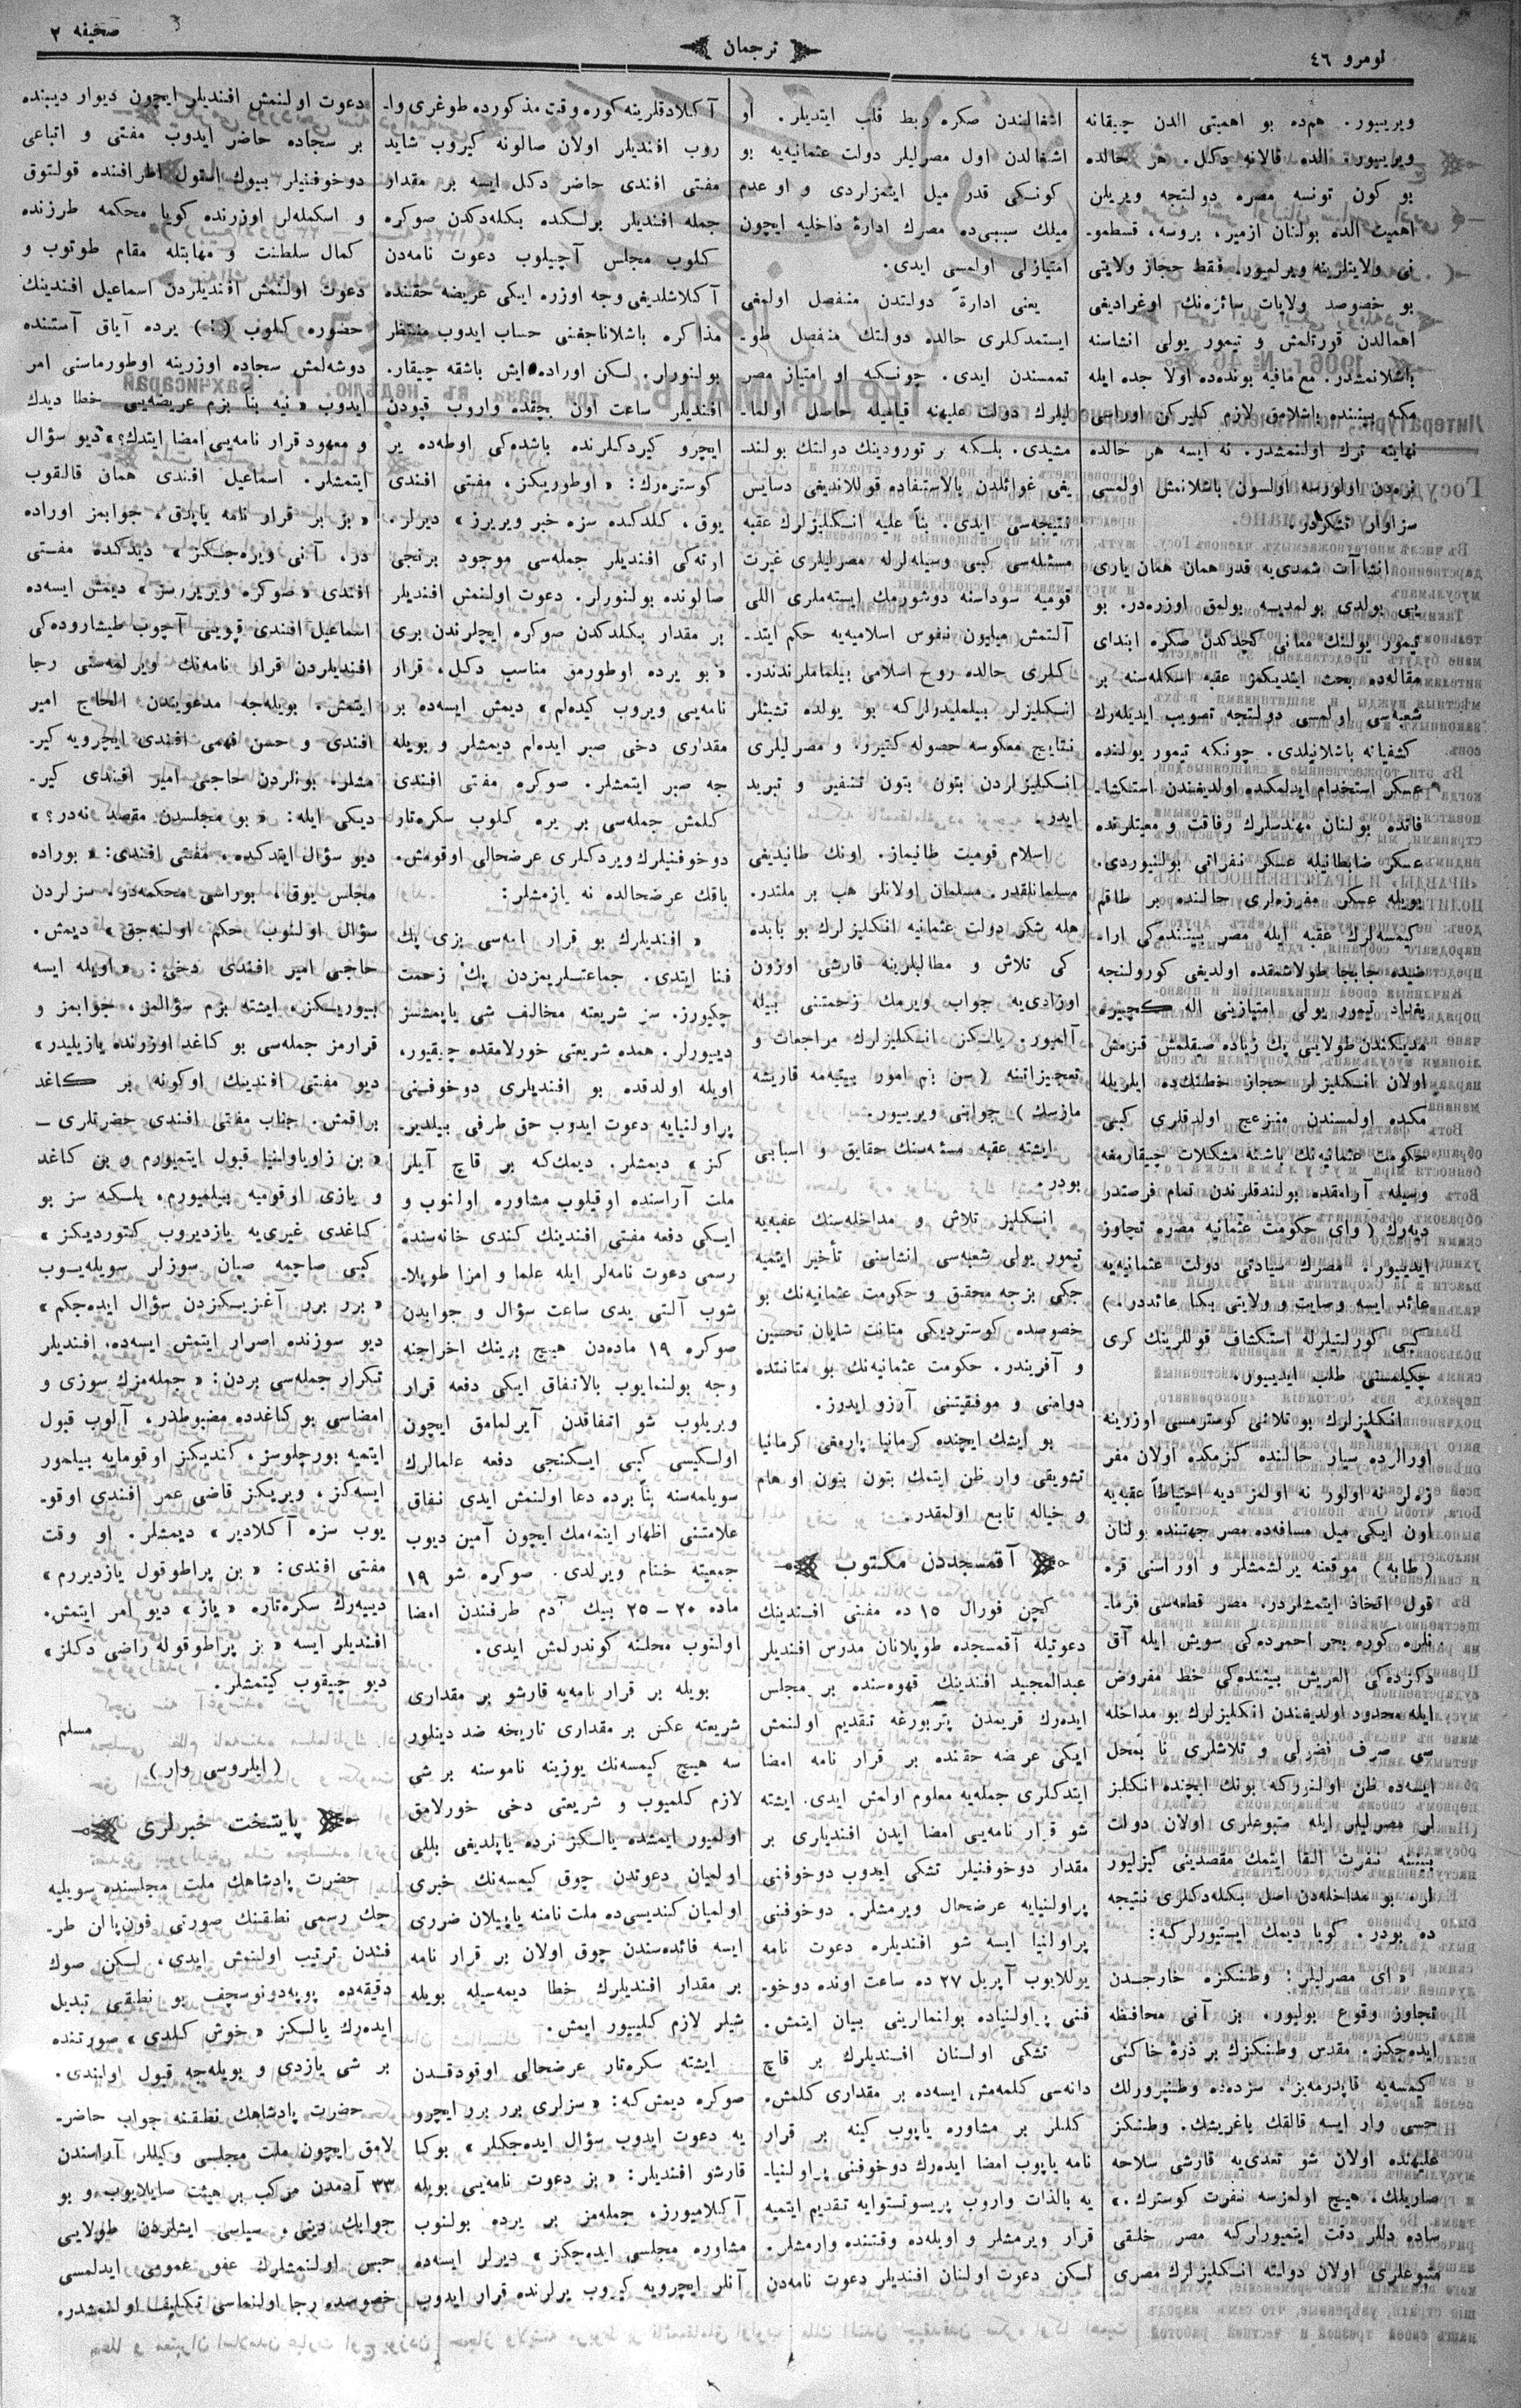 نومرو ٤٦
ترجمان
صحيفه ٢
ويرييور. هم‌ده بو اهميتى الدن چيقانه
ويرييور. الده قالانه دكل. هر حالده
بو كون تونسه مصره دولتجه ويريلن
اهميت الده بولنان ازمير، بروسه، قسطمو-
نى ولايتلرينه ويرلميور. فقط حجاز ولايتى
بو خصوصد ولايات سائره‌نك اوغراديغى
اهمالدن قورتلمش و تيمور يولى انشاسنه
باشلانمشدر. مع مافيه بونده‌ده اولا جده ايله
مكه بيننده باشلامق لازم كليركن اوراسى
نهايته ترك اولنمشدر. نه ايسه هر حالده
نره‌دن اولورسه اولسون باشلانمش اولمسى
سزاوار تشكردر.
انشاآت شمدى‌يه قدر همان همان يارى
يى بولدى بولمديسه بولمق اوزره‌در. بو
تيمور يولنك معانى كچدكدن صكره ابتداى
مقاله‌ده بحث ايتديكمز عقبه اسكله‌سنه بر
شعبه‌سى اولمسى دولتجه تصويب ايديله‌رك
كشفياته باشلانيلدى. چونكه تيمور يولنده
عسكر استخدام ايدلمكده اولديغندن استكشا-
فاتده بولنان مهندسلرك رفاقت و معيتلرنده
عسكر ضابطانيله عسكر نفراتى بولنيوردى.
بويله عسكر مفرزه‌لرى حالنده بر طاقم
كيمسه‌لرك عقبه ايله مصر بيننده‌كى ارا-
ضيده جابجا طولاشمقده اولديغى كورولنجه
بغداد تيمور يولى امتيازينى اله كچيره
مديكندن طولايى پك زياده صيقلمش قيزمش
اولان انكليزلر حجاز خطنك‌ده ايلريله
مكده اولمسندن منزعج اولدقلرى كبى
حكومت عثمانيه‌نك باشنه مشكلات چيقارمغه
وسيله آرامقده بولندقلرندن تمام فرصتدر
ديه‌رك (واى حكومت عثمانيه مصره تجاوز
ايدييور. مصرك سيادتى دولت عثمانيه‌يه
عائد ايسه وصايت و ولايتى بكا عائددر.)
كبى كورلتيلرله استكشاف قوللرينك كرى
چكيلمسنى طلب ايدييور.
انكليزلرك بو تلاشى كوسترمسى اوزرينه
اورالرده سيار حالنده كزمكده اولان مفر
زه‌لر نه اولور نه اولمز ديه احتياطاً عقبه‌يه
اون ايكى ميل مسافه‌ده مصر جهتنده بولنان
(طابه) موقعنه يرلشمشلر و اوراسنى قره
قول اتخاذ ايتمشلردر. مصر قطعه‌سى فرما-
نلره كوره بحر احمرده‌كى سويش ايله آق
دكزده‌كى العريش بيننده‌كى خط مفروض
ايله محدود اولديغندن انكليزلرك بو مداخله
سى صرف فضولى و تلاشلرى نا بمحل
ايسه‌ده ظن اولنوركه بونك ايچنده انكليز
لر مصرليلر ايله متبوعلرى اولان دولت
بيننه نفرت القا ايتمك مقصدينى كيزليور
لر. بو مداخله‌دن اصل بكله‌دكلرى نتيجه
ده بودر. كويا ديمك ايستيورلركه:
«اى مصرليلر! وطنكزه خارجدن
تجاوز وقوع بوليور. بز آنى محافظه
ايده‌جكز. مقدس وطنكزك بر ذرهٔ خاكنى
كيمسه‌يه قاپديرمه‌يز. سزده‌ده وطنپرورلك
حسى وار ايسه قالقك باغريشك. وطنكز
عليهنده اولان شو تعدى‌يه قارشى سلاحه
صاريلك. هيچ اولمزسه نفرت كوسترك.»
ساده دللر دقت ايتميورلركه مصر خلقى
متبوعلرى اولان دولته انكليزلرك مصرى
اشغالندن صكره ربط قلب ايتديلر. او
اشغالدن اول مصرليلر دولت عثمانيه‌يه بو
كونكى قدر ميل ايتمزلردى و او عدم
ميلك سببى‌ده مصرك ادارهٔ داخليه ايچون
امتيازلى اولمسى ايدى.
يعنى ادارةً دولتدن منفصل اولمغى
ايستمدكلرى حالده دولتك منفصل طو-
تممسندن ايدى. چونكه او امتياز مصر
ليلرك دولت عليهنه قياميله حاصل اولما-
مشيدى. بلكه بر تورودينك دولتك بولند-
يغى غوائلدن بالاستفاده قوللانديغى دسايس
نتيجه‌سى ايدى. بناً عليه انكليزلرك عقبه
مسئله‌سى كبى وسيله‌لرله مصرليلرى غيرت
قوميه سوداسنه دوشورمك ايسته‌ملرى اللى
آلتمش ميليون نفوس اسلاميه‌يه حكم ايتد-
كلرى حالده روح اسلامى بيلماملرندندر.
انكليزلر بيلمليدرلركه بو يولده تشبثلر
نتايج معكوسه حصوله كتيرر. و مصرليلرى
انكليزلردن بتون بتون تنفير و تبريد
ايدر.
اسلام قوميت طانيماز. اونك طانيديغى
مسلمانلقدر. مسلمان اولانلر هپ بر ملتدر.
هله شكر دولت عثمانيه انكليزلرك بو بابده
كى تلاش و مطالبلرينه قارشى اوزون
اوزادى‌يه جواب ويرمك زحمتنى بيله
آلميور. يالكز انكليزلرك مراجعات و
تعجيزاتنه (سن بم امور بيتيه‌مه قاريشه
مازسك) جوابنى ويرييور.
ايشته عقبه مسئه‌سنك حقايق و اسبابى
بودر.
انكليز تلاش و مداخله‌سنك عقبه‌يه
تيمور يولى شعبه‌سى انشاسنى تأخير ايتميه
جكى بزجه محقق و حكومت عثمانيه‌نك بو
خصوصده كوسترديكى متانت شايان تحسين
و آفريندر. حكومت عثمانيه‌نك بو متانتده
دوامنى و موفقيتنى آرزو ايدرز.
بو ايشك ايچنده كرمانيا پارمغى كرمانيا
تشويقى وار ظن ايتمك بتون بتون اوهام
و خياله تابع اولمقدر.
آقمسجددن مكتوب
كچن فورال ١٥ ده مفتى افندينك
دعوتيله آقمسجده طوپلانان مدرس افنديلر
عبدالمجيد افندينك قهوه‌سنده بر مجلس
ايده‌رك قريمدن پتربورغه تقديم اولنمش
ايكى عريضه حقنده بر قرار نامه امضا
ايتدكلرى جمله‌يه معلوم اولمش ايدى. ايشته
شو قرار نامه‌يى امضا ايدن افنديلرى بر
مقدار دوخوفنيلر تشكى ايدوب دوخوفنى
پراولنيايه عرضحال ويرمشلر. دوخوفنى
پراولنيا ايسه شو افنديلره دعوت نامه
يوللايوب آپريل ٢٧ ده ساعت اونده دوخو-
فنى پراولنياده بولنمالرينى بيان ايتمش.
تشكى اولنان افنديلرك بر قاچ
دانه‌سى كلمه‌مش ايسه‌ده بر مقدارى كلمش.
كلنلر بر مشاوره ياپوب كينه بر قرار
نامه ياپوب امضا ايده‌رك دوخوفنى پراولنيا-
يه بالذات واروب پريسوتستوايه تقديم ايتميه
قرار ويرمشلر و اويله‌ده وقتنده وارمشلر.
لكن دعوت اولنان افنديلر دعوت نامه‌دن
آكلادقلرينه كوره وقت مذكورده طوغرى وا-
روب افنديلر اولان صالونه كيروب شايد
مفتى افندى حاضر دكل ايسه بر مقدار
جمله افنديلر برلكده بكله‌دكدن صوكره
كلوب مجلس آچيلوب دعوت نامه‌دن
آكلاشلديغى وجه اوزره ايكى عريضه حقنده
مذاكره باشلاناجغنى حساب ايدوب منتظر
بولنورلر. لكن اوراده ايش باشقه چيقار.
افنديلر ساعت اون بچقده واروب قپودن
ايچرو كيردكلرنده باشده‌كى اوطه‌ده ير
كوستره‌رك: «اوطوريكز، مفتى افندى
يوق، كلدكده سزه خبر ويريرز» ديرلر.
ارته‌كى افنديلر جمله‌سى موجود برنجى
صالونده بولنورلر. دعوت اولنمش افنديلر
بر مقدار بكلدكدن صوكره ايچلرندن برى
«بو يرده اوطورمق مناسب دكل، قرار
نامه‌يى ويروب كيده‌لم» ديمش ايسه‌ده بر
مقدارى دخى صبر ايده‌لم ديمشلر و بويله
جه صبر ايتمشلر. صوكره مفتى افندى
كلمش جمله‌سى بر يره كلوب سكره‌تار
دوخوفنيلرك ويردكلرى عرضحالى اوقومش.
باقك عرضحالده نه يازمشلر:
«افنديلرك بو قرار نامه‌سى بزى پك
فنا ايتدى. جماعتلريمزدن پك زحمت
چكيورز. سز شريعته مخالف شى ياپمشسز
دييورلر. همده شريعتى خورلامقده چيقيور،
اويله اولدقده بو افنديلرى دوخوفنى
پراولنيايه دعوت ايدوب حق طرفى بيلديـ-
كز» ديمشلر. ديمك‌كه بر قاچ آيلر
ملت آراسنده اوقيلوب مشاوره اولنوب و
ايكى دفعه مفتى افندينك كندى خانه‌سنده
رسمى دعوت نامه‌لر ايله علما و امرا طوپلا-
شوب آلتى يدى ساعت سؤال و جوابدن
صوكره ١٩ ماده‌دن هيچ برينك اخراجنه
وجه بولنمايوب بالاتفاق ايكى دفعه قرار
ويريلوب شو اتفاقدن آيرلمامق ايچون
اولكيسى كبى ايكنجى دفعه علمالرك
سويلمه‌سنه بناً برده دعا اولنمش ايدى نفاق
علامتنى اظهار ايتمه‌مك ايچون آمين ديوب
جمعيته ختام ويرلدى. صوكره شو ١٩
ماده ٢٠–٢٥ بيك آدم طرفندن امضا
اولنوب محلنه كوندرلمش ايدى.
بويله بر قرار نامه‌يه قارشو بر مقدارى
شريعته عكس بر مقدارى تاريخه ضد دينلور
سه هيچ كيمسه‌نك يوزينه ناموسنه بر شى
لازم كلميوب و شريعتى دخى خورلامق
اولميور ايمشده يالكز نرده ياپلديغى بللى
اولميان دعوتدن چوق كيمسه‌نك خبرى
اولميان كنديسى‌ده ملت نامنه ياپيلان ضررى
ايسه فائده‌سندن چوق اولان بر قرار نامه
بر مقدار افنديلرك خطا ديمه‌سيله بويله
شيلر لازم كلييور ايمش.
ايشته سكره‌تار عرضحالى اوقودقدن
صوكره ديمش‌كه: «سزلرى برر برر ايچرو
يه دعوت ايدوب سؤال ايده‌جكلر» بوكا
قارشو افنديلر: «بز دعوت نامه‌يى بويله
آكلاميورز، جمله‌مز بر يرده بولنوب
مشاوره مجلسى ايده‌جكز» ديرلر ايسه‌ده
آنلر ايچرويه كيروب يرلرنده قرار ايدوب
دعوت اولنمش افنديلر ايچون ديوار ديبنده
بر سجاده حاضر ايدوب مفتى و اتباعى
دوخوفنيلر بيوك استول اطرافنده قولتوق
و اسكمله‌لر اوزرنده كويا محكمه طرزنده
كمال سلطنت و مهابتله مقام طوتوب و
دعوت اولنمش افنديلردن اسماعيل افندينك
حضوره كلوب (!) يرده آياق آستنده
دوشه‌لمش سجاده اوزرينه اوطورماسنى امر
ايدوب «نيه بنا بزم عريضه‌يى خطا ديدك
و معهود قرار نامه‌يى امضا ايتدك؟» ديو سؤال
ايتمشلر. اسماعيل افندى همان قالقوب
«بز بر قرار نامه ياپدق، جوابمز اوراده
در. آنى ويره‌جكز» ديدكده مفتى
افندى «صوكره ويريرسز» ديمش ايسه‌ده
اسماعيل افندى قپويى آچوب طيشاروده‌كى
افنديلردن قرار نامه‌نك ويرلمه‌سنى رجا
ايتمش. بويله‌جه مدعويتدن الحاج امير
افندى و حسن فهمى افندى ايچرويه كير-
مشلر. بونلردن حاجى امير افندى كير-
ديكى ايله: «بو مجلسدن مقصد نه‌در؟»
ديو سؤال ايتدكده. مفتى افندى: «بوراده
مجلس يوق، بوراسى محكمه‌در. سزلردن
سؤال اولنوب حكم اولنه‌جق» ديمش.
حاجى امير افندى دخى: «اويله ايسه
بيوريكز. ايشته بزم سؤالمز، جوابمز و
قرارمز جمله‌سى بو كاغد اوزرنده يازيليدر»
ديو مفتى افندينك اوكونه بر كاغد
براقمش. جناب مفتى افندى حضرتلرى –
«بن زاوياولنيا قبول ايتميورم و بن كاغد
و يازى اوقوميه بيلميورم. بلكه سز بو
كاغدى غيرى‌يه يازديروب كتورديكز»
كبى صاچمه صپان سوزلر سويله‌يوب
«برر برر آغزيكزدن سؤال ايده‌جكم»
ديو سوزنده اصرار ايتمش ايسه‌ده. افنديلر
تكرار جمله‌سى بردن: «جمله‌مزك سوزى و
امضاسى بو كاغدده مضبوطدر، آلوب قبول
ايتميه بورجلوسز، كنديكز اوقومايه بيلميور
ايسه‌كز، ويريكز قاضى عمر افندى اوقو-
يوب سزه آكلادير» ديمشلر. او وقت
مفتى افندى: «بن پراطوقول يازديررم»
دييه‌رك سكره‌تاره «ياز» ديو امر ايتمش.
افنديلر ايسه «بز پراطوقوله راضى دكلز»
ديو چيقوب كيتمشلر.
مسلم
(ايلروسى وار)
پايتخت خبرلرى
حضرت پادشاهك ملت مجلسنده سويليه
جك رسمى نطقنك صورتى فون‌پالن طر-
فندن ترتيب اولنمش ايدى، لكن صوك
دقيقه‌ده پوبه‌دونوسچف بو نطقى تبديل
ايده‌رك يالكز «خوش كلدى» صورتنده
بر شى يازدى و بويله‌جه قبول اولندى.
حضرت پادشاهك نطقنه جواب حاضر-
لامق ايچون ملت مجلسى وكيللر آراسندن
٣٣ آدمدن مركب بر هيئت صايلايوب و بو
جوابك دينى، سياسى ايشلردن طولايى
حبس اولنمشلرك عفو عمومى ايدلمسى
خصوصده رجا اولنماسى تكليف اولنمشدر.